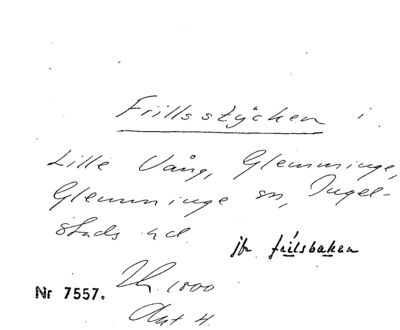 Frillsstycken i
Lille Vång, Glemminge,
Glemminge sn, Ingel-
stads hd
jfr frilsbaken
Nr 7557.
1800
Akt 4.